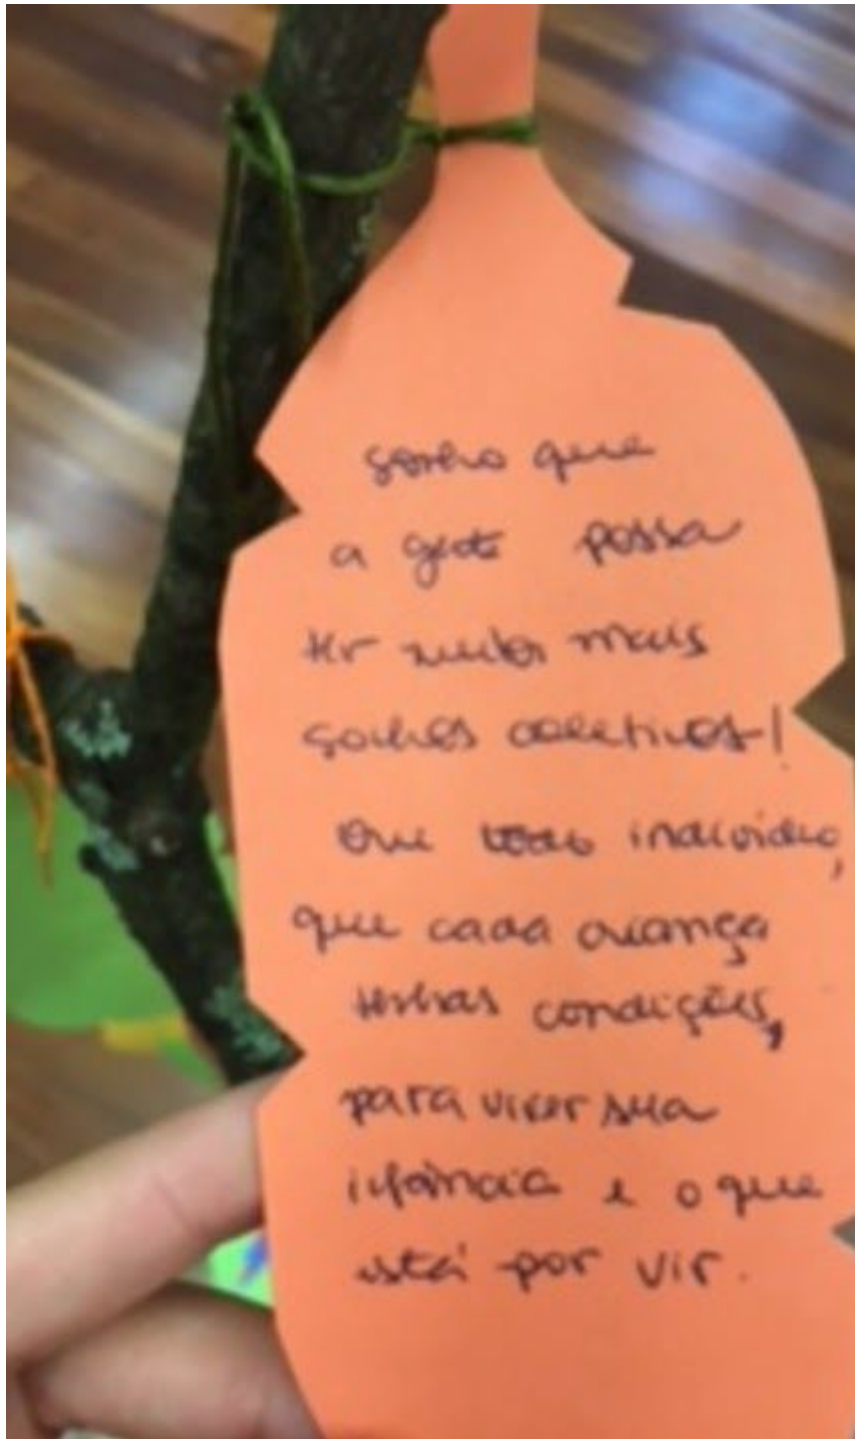 sonho que
a gente possa
ter muitos mais
sonhos coletivos!
Que todo indivíduo,
que cada criança
tenhas condições,
para viver sua
infância e o que
está por vir.